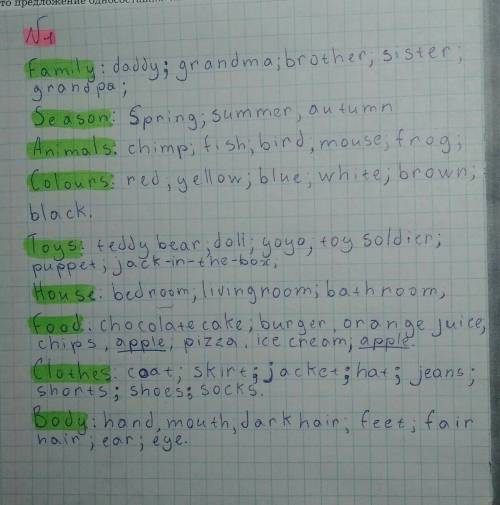 то предложение односостав
№1
Family: daddy; grandma; brother, sister;
grandpa;
Season: Spring; summer, autumn
Animals: chimp; fish; bird, mouse; frog;
Colours: red, yellow; blue; white; brown;
black.
Toys: teddy bear, doll; yoyo, toy soldier;
puppet, jack-in-the-box,
House: bedroom; livingroom; bathroom,
Food: chocolate cake; burger, orange juice,
chips, apple, pizza, ice cream, apple.
Clothes: coat; skirt; jacket; hat; jeans;
shorts; shoes; socks.
Body: hand, mouth, dark hair; feet; fair
hair; ear; eye.